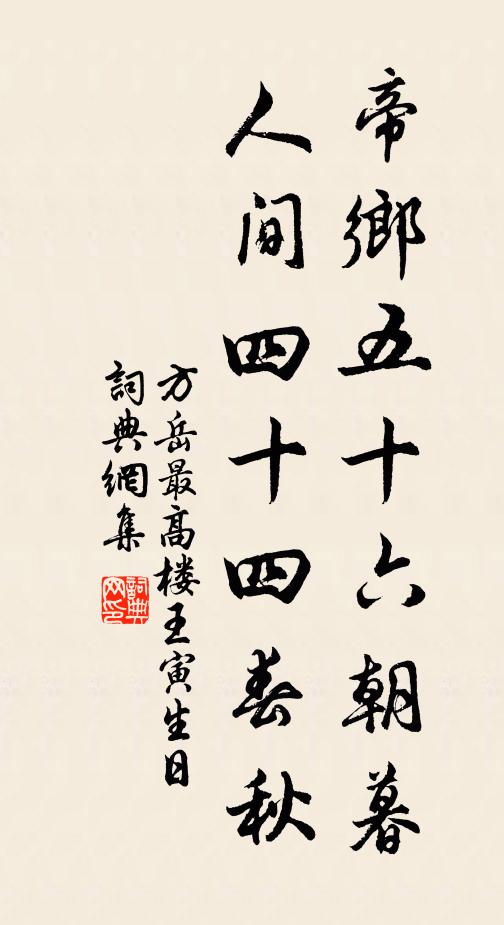 帝鄉五十六朝暮
人间四十四春秋
方岳最高楼王寅生日
詞典網集
詞典网印